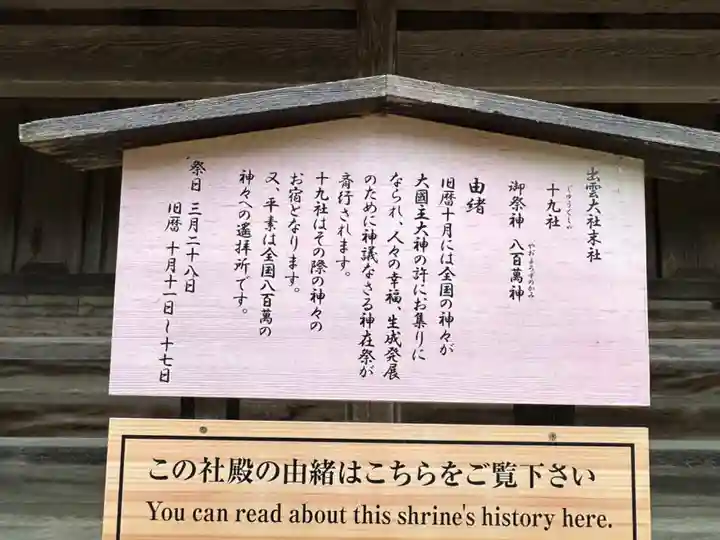 出雲大社末社
十九社
じゅうくしゃ
御祭神 八百萬神
やおよろずのかみ
由緒
旧暦十月には全国の神々が
大國主大神の許にお集りに
なられ、人々の幸福、生成発展
のために神議なさる神在祭が
斎行されます。
十九社はその際の神々の
お宿となります。
又、平素は全国八百萬の
神々への遙拝所です。
祭日 三月二十八日
旧暦 十月十一日～十七日
この社殿の由緒はこちらをご覧下さい
You can read about this shrine's history here.